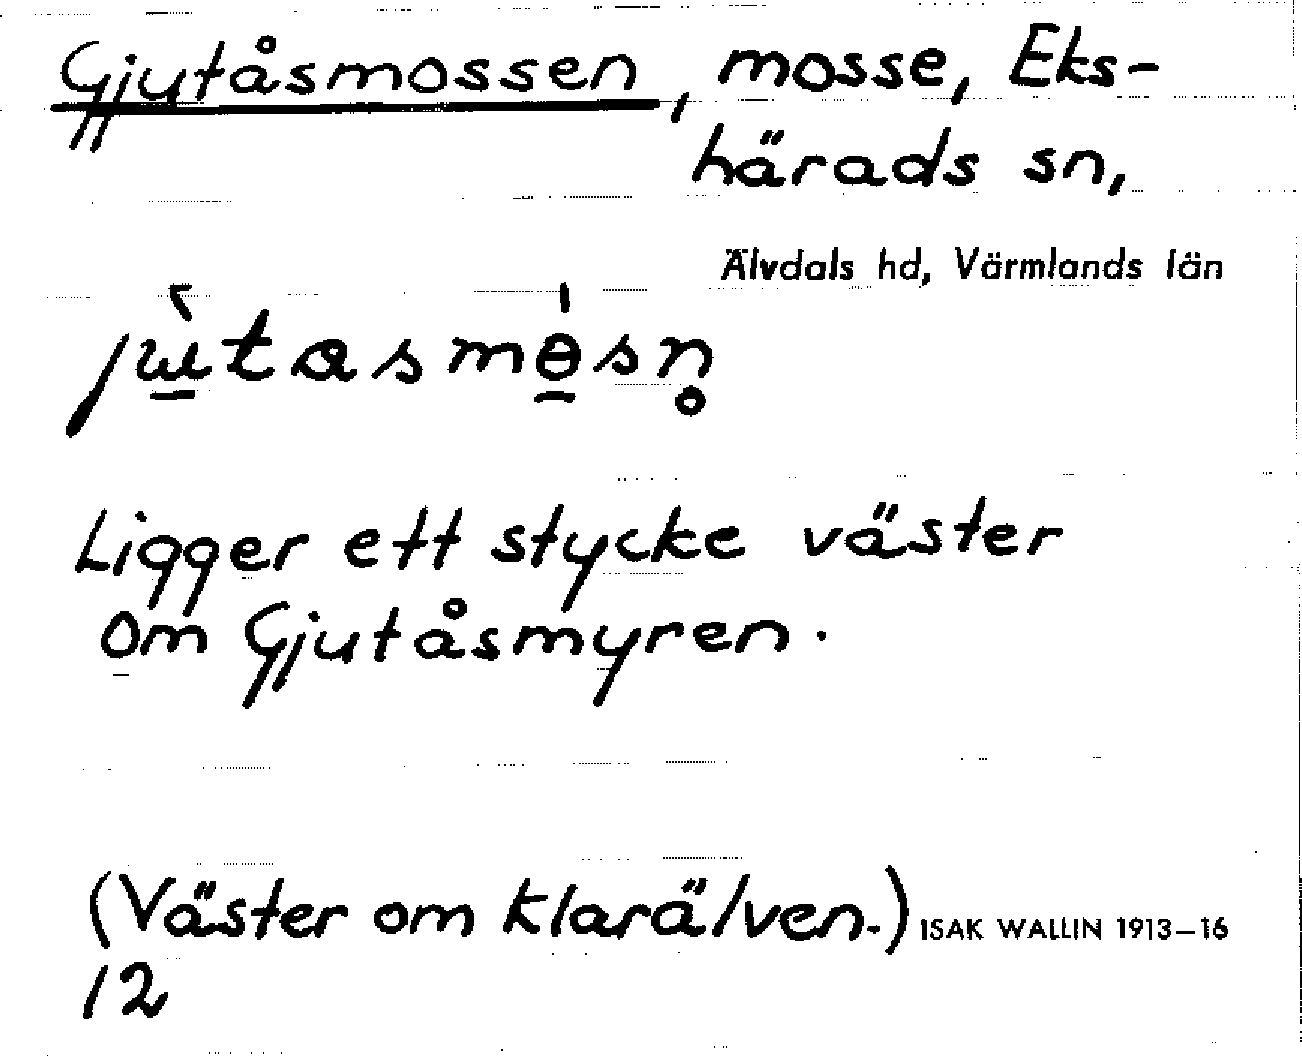 Gjutåsmossen, mosse, Eks-
härads sn,
Älvdals hd, Värmlands län
jɯ̠̀tasmɵ̠́sn̥
Ligger ett stycke väster
om Gjutåsmyren.
(Väster om Klarälven.) ISAK WALLIN 1913–16
12